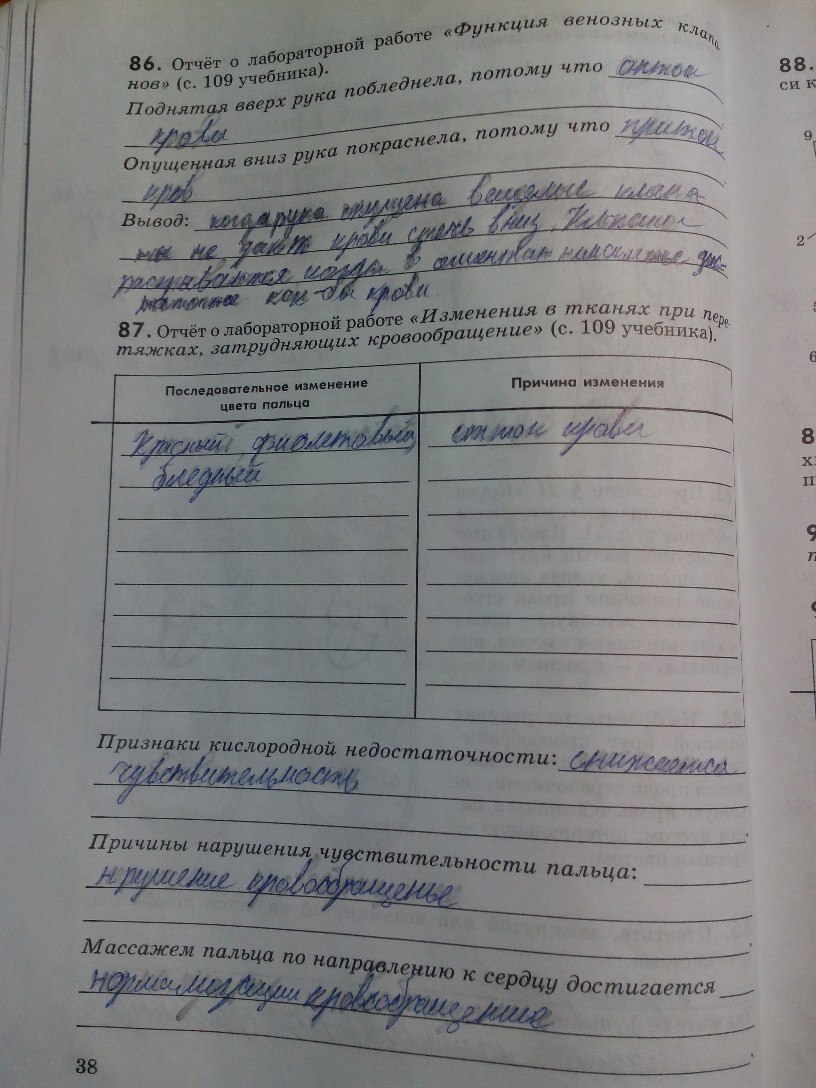 86. Отчёт о лабораторной работе «Функция венозных клапа
нов» (с. 109 учебника).
Поднятая вверх рука побледнела, потому что отток
крови
Опущенная вниз рука покраснела, потому что приток
кров
Вывод: когда рука опущена клапа
ны не дают крови стечь вниз.
раскрываются когда в
как-бы крови
87. Отчёт о лабораторной работе «Изменения в тканях при пере
тяжках, затрудняющих кровообращение» (с. 109 учебника).
Последовательное изменение
цвета пальца
Причина изменения
Красный, фиолетовый,
бледный
отток крови
Признаки кислородной недостаточности: снижается
чувствительность
Причины нарушения чувствительности пальца:
нрушение кровообращенье
Массажем пальца по направлению к сердцу достигается
кровообращения
38
88.
си к
9
2
5
6
8
х
п
9